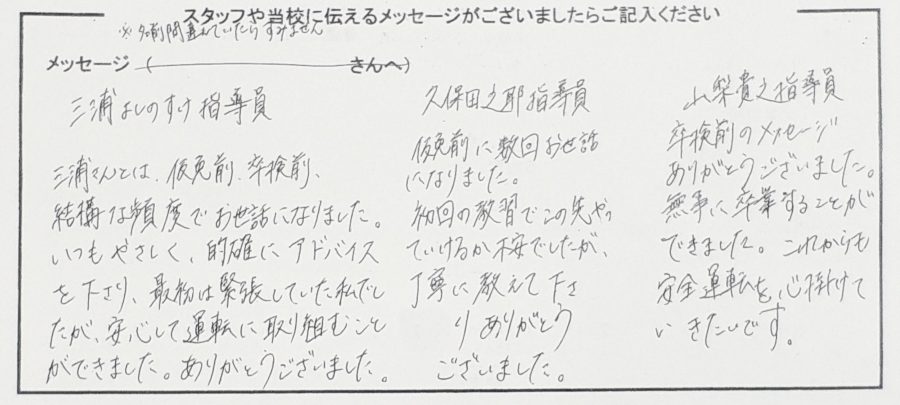 スタッフや当校に伝えるメッセージがございましたらご記入ください
※名前間違えていたらすみません
メッセージ(　　　さんへ)
三浦よしのすけ指導員
三浦さんとは、仮免前、卒検前、
結構な頻度でお世話になりました。
いつもやさしく、的確にアドバイス
を下さり、最初は緊張していた私でし
たが、安心して運転に取り組むこと
ができました。ありがとうございました。
久保田之耶指導員
仮免前に数回お世話
になりました。
初回の教習でこの先やっ
ていけるか不安でしたが、
丁寧に教えて下さ
りありがとう
ございました。
山梨貴之指導員
卒検前のメッセージ
ありがとうございました。
無事に卒業することが
できました。これからも
安全運転を心掛けて
いきたいです。